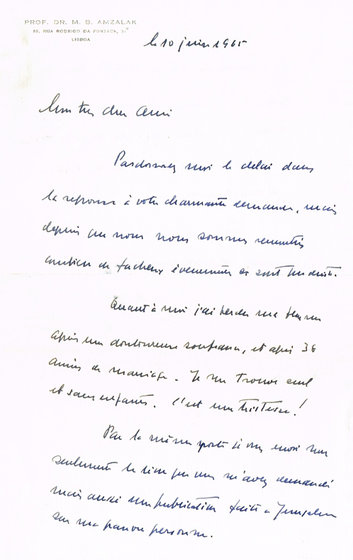 PROF. DR. M. B. AMZALAK
RUA RODRIGO DA FONSECA
LISBOA
le 10 juin 1965
Mon très cher Ami
Pardonnez moi le délai dans
la reponse à votre charmante demande, mais
depuis que nous nous sommes rencontrés
combien de facheux évenements se sont produits.
Quant à moi j'ai perdu ma femme
après une douloureuse souffrance, et après 36
années de mariage. Je me trouve seul
et sans enfants. C'est une tristesse!
Par la même poste je vous envoi non
seulement le livre que vous m'avez demandé
mais aussi une publication faite a Jerusalem
sur ma pauvre personne.